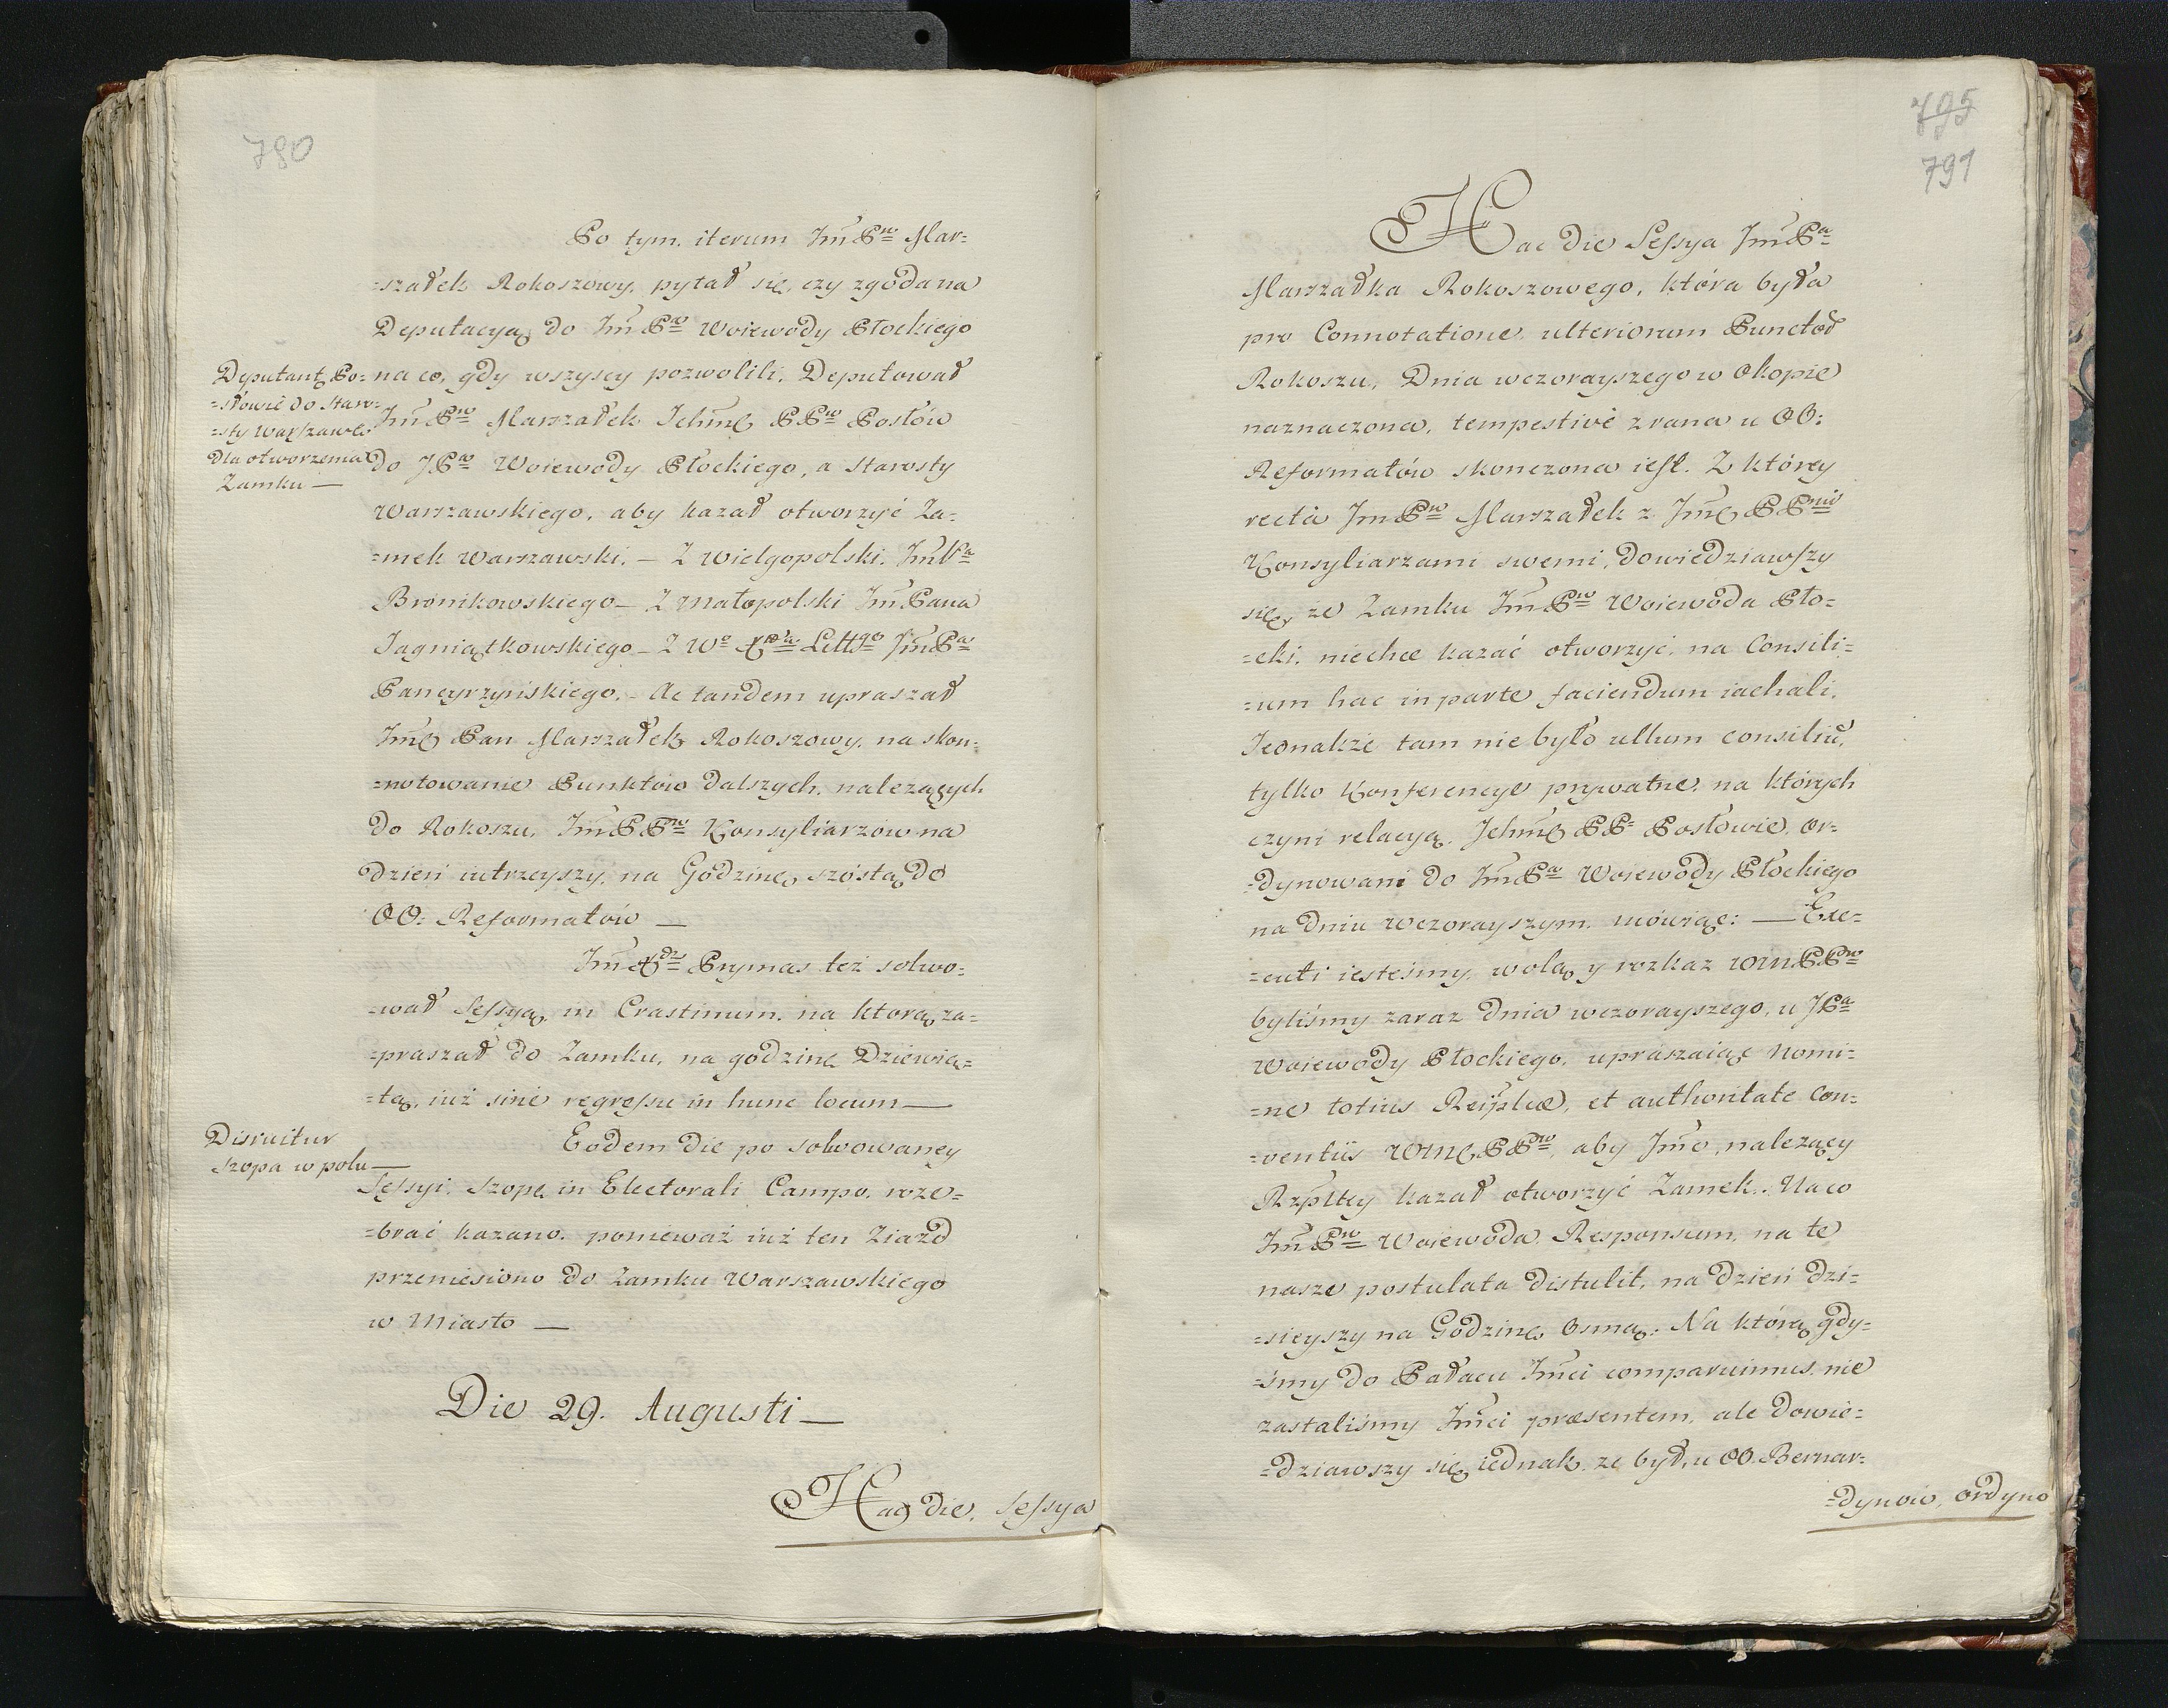 780
Po tym. iterum Jm̃ Pn Mar=
=szałek Rokoszowy, pytał się, czy zgoda na
Deputacyą do Jm̃ Pa Woiewody Płockiego
na co, gdy wszyscy pozwolili, Deputował
Jm̃ Pn Marszałek Ichmę PPw Posłów
do JPa Woiewody Płockiego, a Starosty
Warszawskiego, aby kazał otworzyć Za=
=mek Warszawski. — Z Wielgopolski. Jm̃ Pa
Bronikowskiego — Z Małopolski Jm̃ Pana
Jagniątkowskiego — Z Wo Xa Littgo Jm̃ Pa
Pancyrzyńskiego. — Ac tandem upraszał
Jmę Pan Marszałek Rokoszowy, na skon=
=notowanie Punktów dalszych, należących
do Rokoszu, Jm̃ PPw Konsyliarzów na
dzień iutrzeyszy, na Godzinę szóstą do
OO: Reformatów —
Jm̃ Xdz Prymas też solwo=
=wał Sessyą, in Crastinum, na ktorą za=
=praszał do Zamku, na godzinę Dziewią=
=tą, iuż sine regressu in hunc locum —
Eodem Die po solwowaney
Sessyi, Szopę in Electorali Campo, roze=
=brać kazano, ponieważ iuż ten Ziazd
przeniesiono do Zamku Warszawskiego
w Miasto —
Die 29. Augusti —
Hac die, Sessya
Deputant Po=
=słowie do Staro=
=sty Warszawgo
dla otworzenia
Zamku —
Disruitur
szopa w polu —
795
791
Hac Die Sessya Jm̃ Pa
Marszałka Rokoszowego, która była
pro Connotatione ulteriorum Punctoȓ
Rokoszu, Dnia wczorayszego w Okopie
naznaczona, tempestivè z rana u OO:
Reformatów skonczona iest. Z którey
rectà Jm̃ Pn Marszałek z Jmę PPmi
Konsyliarzami swemi, dowiedziawszy
się, że Zamku Jm̃ Pn Woiewoda Pło=
=cki, niechce kazać otworzyć, na Consili=
=um hac in parte faciendum iachali.
Jednakże tam nie było ullum consiliũ,
tylko Konferencye prywatne, na których
czyni relacyą, Ichmę PP Posłowie, or=
=dynowani do Jm̃ Pa Woiewody Płockiego
na dniu wczorayszym, mówiąc: — Exe=
=cuti iesteśmy, wolą y rozkaz WM PPw
byliśmy zaraz dnia wczorayszego, u JPa
Woiewody Płockiego, upraszaiąc nomi=
=ne totius Reip̃lcæ, et authoritate Con=
=ventûs WMę PPw, aby Jmć, należący
Rzp̃ltey kazał otworzyć Zamek. Na co
Jm̃ Pn Woiewoda Responsum, na te
nasze postulata distulit, na dzień dzi=
=sieyszy na Godzinę osmą. Na którą gdy=
=śmy do Pałacu Jmci comparuimus, nie
zastaliśmy Jmci præsentem, ale dowie=
=dziawszy się iednak, ze był, u OO. Bernar=
=dynow, ordyno